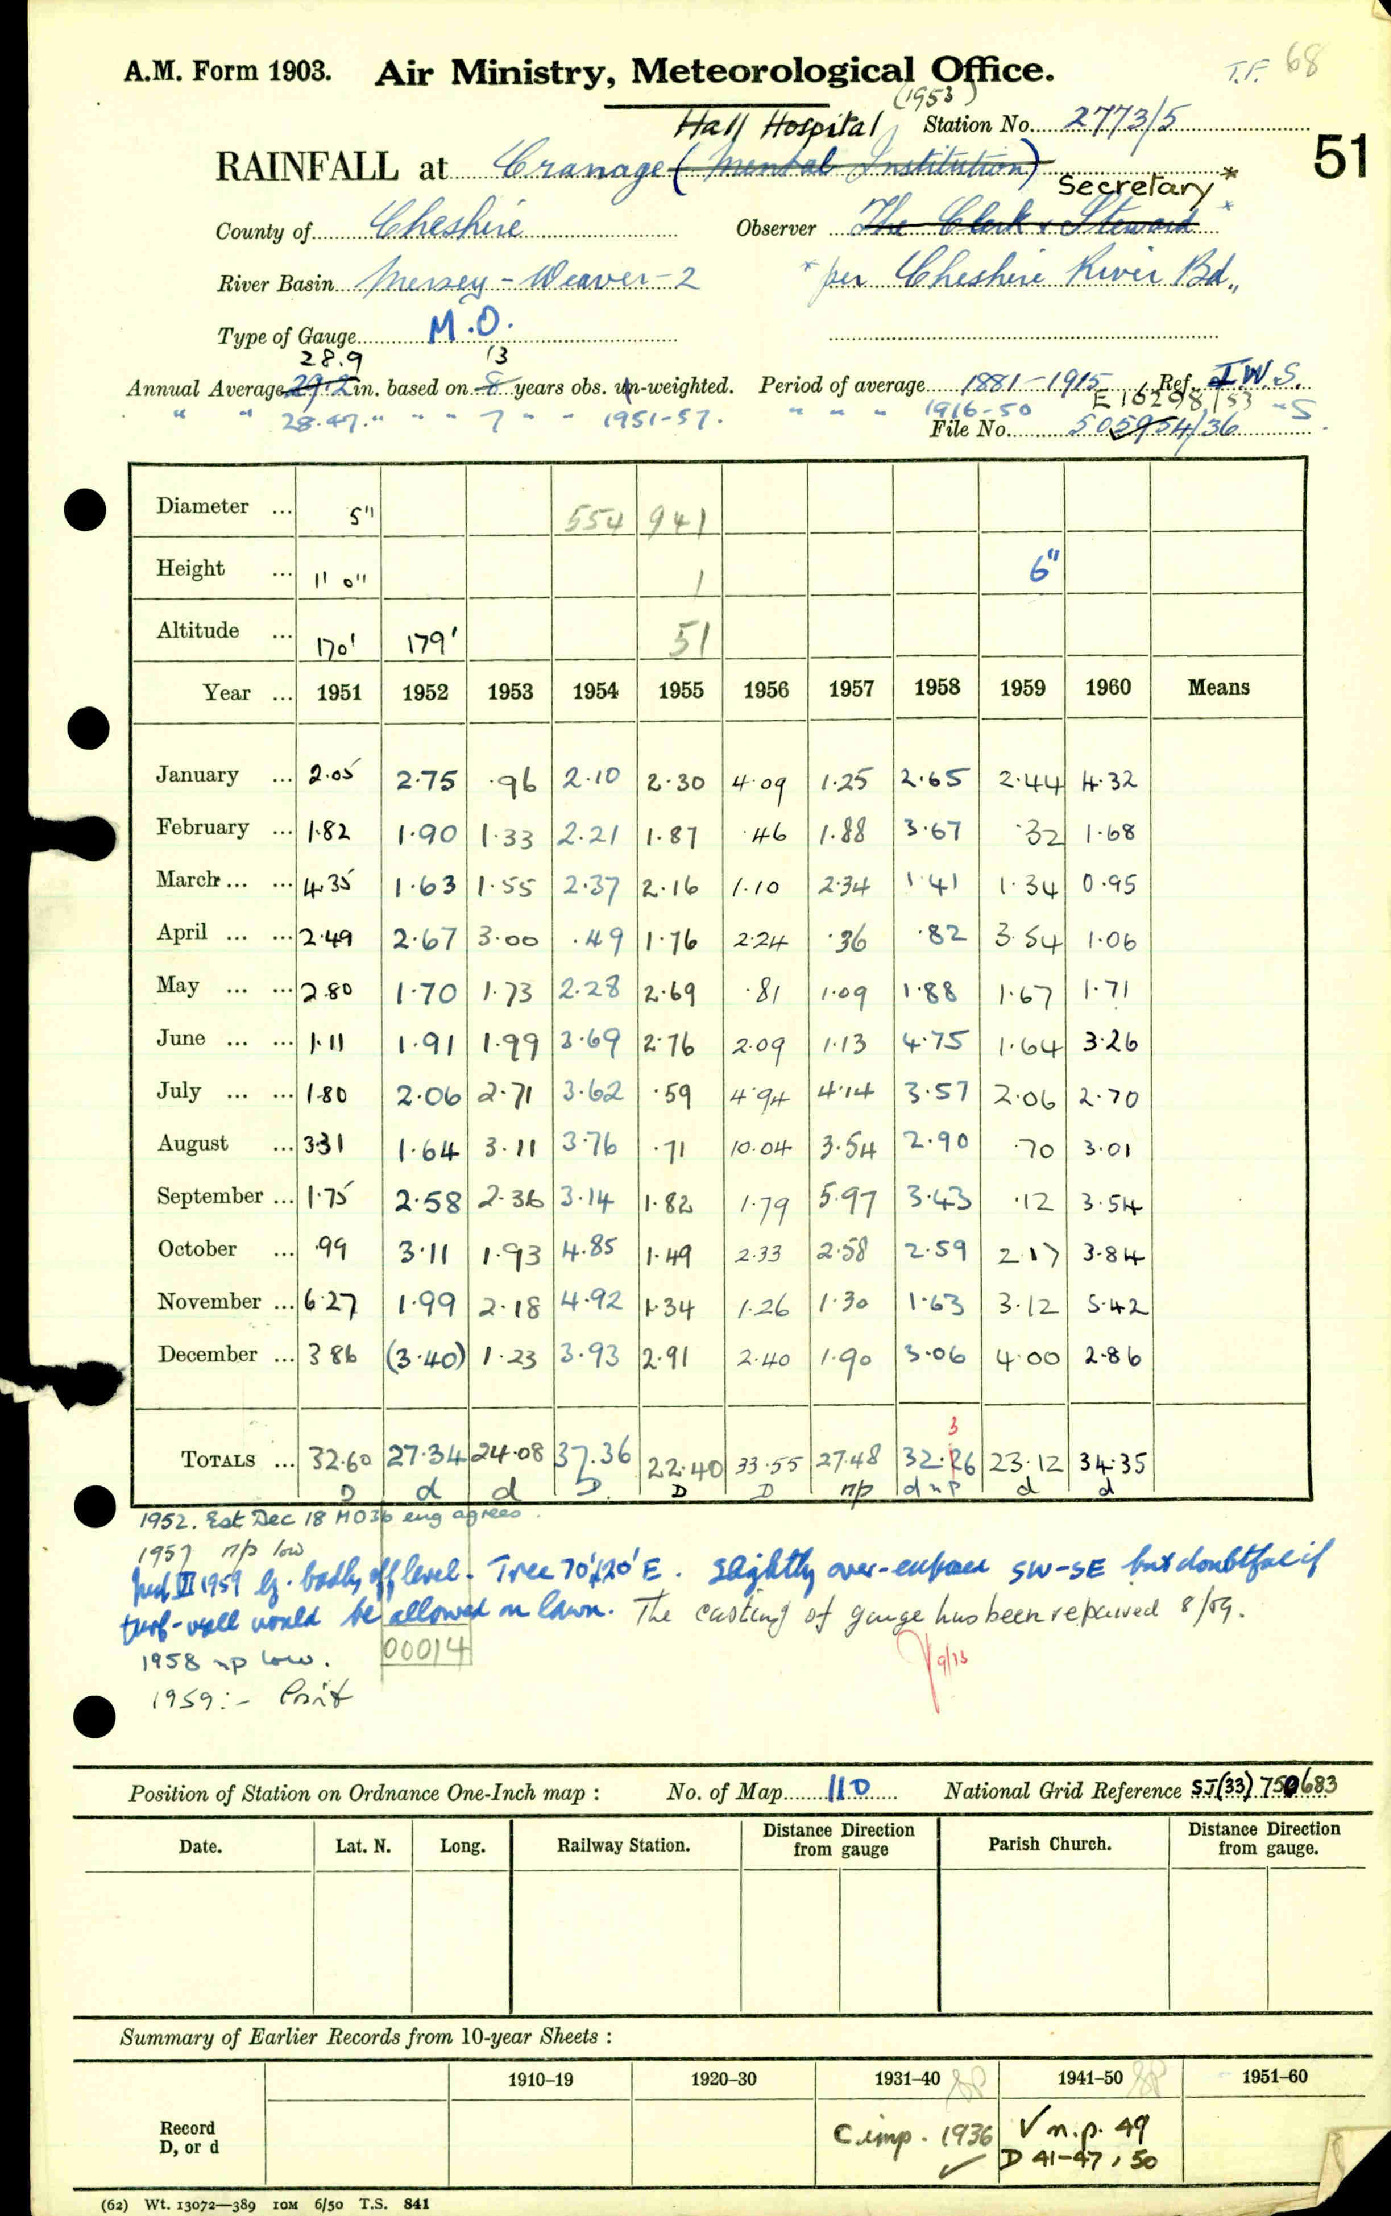 A.M. Form 1903. Air Ministry, Meteorological Office. T.F. 68
(1953)
Hall Hospital Station No. 2773/5
51
RAINFALL at Cranage (Mental Institution)
Secretary *
County of Cheshire Observer The Clerk & Steward *
River Basin Mersey - Weaver - 2 * per Cheshire River Bd.,
Type of Gauge M.O.
28.9 13
Annual Average 29.2 in. based on 8 years obs. un-weighted. Period of average 1881-1915 Ref. I.W.S.
" " 28.47." " " 7 " " 1951-57. " " " 1916-50 E16298/53 " S
File No. 505954/36
Diameter ... 5" 554 941
Height ... 1' 0" 1 6"
Altitude ... 170' 179' 51
Year ... 1951 1952 1953 1954 1955 1956 1957 1958 1959 1960 Means
January ... 2.05 2.75 .96 2.10 2.30 4.09 1.25 2.65 2.44 4.32
February ... 1.82 1.90 1.33 2.21 1.87 .46 1.88 3.67 .32 1.68
March ... ... 4.35 1.63 1.55 2.37 2.16 1.10 2.34 1.41 1.34 0.95
April ... ... 2.49 2.67 3.00 .49 1.76 2.24 .36 .82 3.54 1.06
May ... ... 2.80 1.70 1.73 2.28 2.69 .81 1.09 1.88 1.67 1.71
June ... ... 1.11 1.91 1.99 3.69 2.76 2.09 1.13 4.75 1.64 3.26
July ... ... 1.80 2.06 2.71 3.62 .59 4.94 4.14 3.57 2.06 2.70
August ... 3.31 1.64 3.11 3.76 .71 10.04 3.54 2.90 .70 3.01
September ... 1.75 2.58 2.36 3.14 1.82 1.79 5.97 3.43 .12 3.54
October ... .99 3.11 1.93 4.85 1.49 2.33 2.58 2.59 2.17 3.84
November ... 6.27 1.99 2.18 4.92 1.34 1.26 1.30 1.63 3.12 5.42
December ... 3.86 (3.40) 1.23 3.93 2.91 2.40 1.90 3.06 4.00 2.86
3
TOTALS ... 32.60 27.34 24.08 37.36 22.40 33.55 27.48 32.26 23.12 34.35
D d d D D D n/p d n p d d
1952. Est Dec 18 MO3b eng agrees.
1957 n/p low
III 1959 G. badly off level. Tree 70'/20' E. Slightly over-exposed SW-SE but doubtful if
turf-wall would be allowed on lawn. The casting of gauge has been repaired 8/59.
1958 np low. 00014 9/13
1959:-
Position of Station on Ordnance One-Inch map : No. of Map 110 National Grid Reference SJ(33) 750683
Date. Lat. N. Long. Railway Station. Distance from Direction gauge Parish Church. Distance from Direction gauge.
Summary of Earlier Records from 10-year Sheets :
1910–19 1920–30 1931–40 1941–50 1951–60
Record D, or d C. imp. 1936 ✓ √ n.p. 49
D 41-47, 50
(62) Wt. 13072—389 10M 6/50 T.S. 841